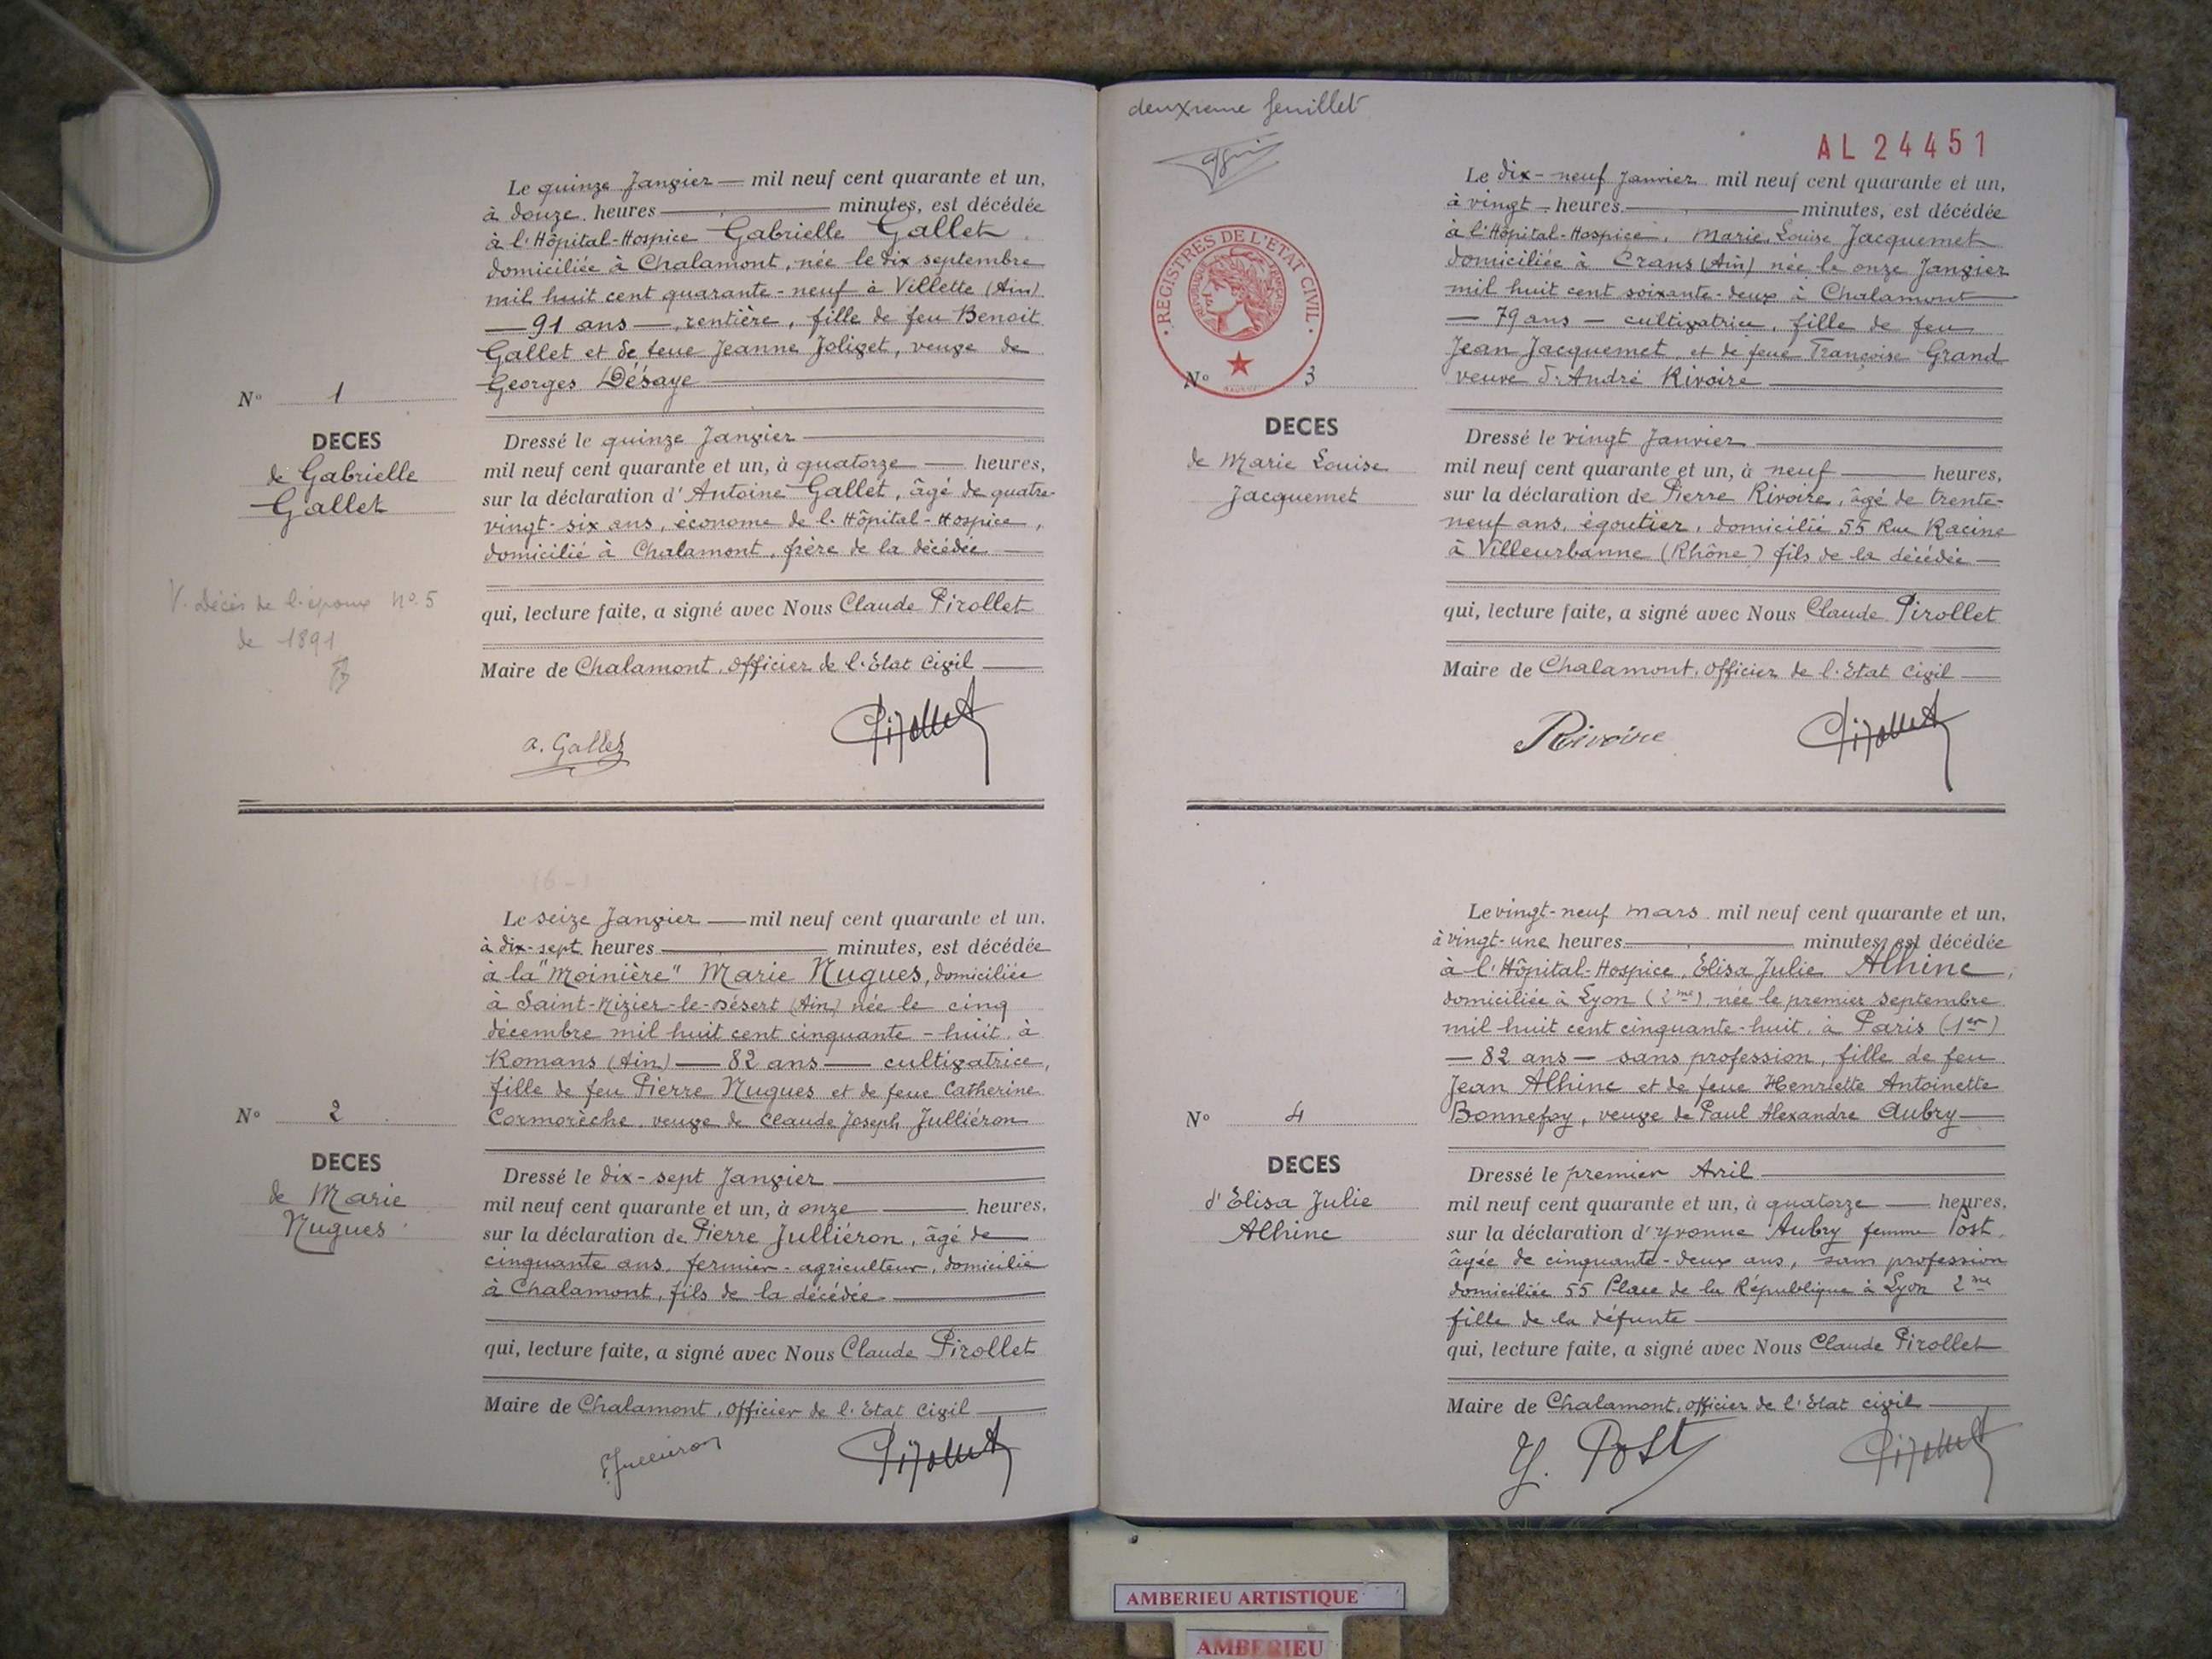 Le quinze Janvier — mil neuf cent quarante et un,
à douze heures — minutes, est décédée
à l'Hôpital-Hospice Gabrielle Gallet
domiciliée à Chalamont, née le dix septembre
mil huit cent quarante-neuf à Villette (Ain)
— 91 ans —, rentière, fille de feu Benoit
Gallet et de feue Jeanne Jolivet, veuve de
Georges Désaye
N° 1
DECES
de Gabrielle
Gallet
Dressé le quinze Janvier
mil neuf cent quarante et un, à quatorze — heures,
sur la déclaration d'Antoine Gallet, âgé de quatre-
vingt-six ans, économe de l'Hôpital-Hospice,
domicilié à Chalamont, frère de la décédée —
V. décès de l'époux N° 5
de 1891
qui, lecture faite, a signé avec Nous Claude Pirollet
Maire de Chalamont, Officier de l'Etat Civil —
a. Gallet
Pirollet
Le seize Janvier — mil neuf cent quarante et un.
à dix-sept heures — minutes, est décédée
à la "Moinière" Marie Nugues, domiciliée
à Saint-Nizier-le-Désert (Ain) née le cinq
décembre mil huit cent cinquante-huit, à
Romans (Ain) — 82 ans — cultivatrice,
fille de feu Pierre Nugues et de feue Catherine
Cormorèche, veuve de Claude Joseph Julliéron
N° 2
DECES
de Marie
Nugues
Dressé le dix-sept Janvier
mil neuf cent quarante et un, à onze — heures,
sur la déclaration de Pierre Julliéron, âgé de
cinquante ans, fermier-agriculteur, domicilié
à Chalamont, fils de la décédée.
qui, lecture faite, a signé avec Nous Claude Pirollet
Maire de Chalamont, Officier de l'Etat Civil
P. Julliéron
Pirollet
deuxieme feuillet
AL 24451
REGISTRES DE L'ETAT CIVIL
Le dix-neuf Janvier mil neuf cent quarante et un,
à vingt — heures — minutes, est décédée
à l'Hôpital-Hospice, Marie Louise Jacquemet
domiciliée à Crans (Ain) née le onze Janvier
mil huit cent soixante-deux à Chalamont
— 79 ans — cultivatrice, fille de feu
Jean Jacquemet, et de feue Françoise Grand
veuve d'André Rivoire
N° 3
DECES
de Marie Louise
Jacquemet
Dressé le vingt Janvier
mil neuf cent quarante et un, à neuf — heures,
sur la déclaration de Pierre Rivoire, âgé de trente-
neuf ans, égoutier, domicilié 55 Rue Racine
à Villeurbanne (Rhône) fils de la décédée —
qui, lecture faite, a signé avec Nous Claude Pirollet
Maire de Chalamont, Officier de l'Etat Civil —
Rivoire
Pirollet
Le vingt-neuf mars mil neuf cent quarante et un,
à vingt-une heures — minutes, est décédée
à l'Hôpital-Hospice, Elisa Julie Alhinc,
domiciliée à Lyon (2me) née le premier septembre
mil huit cent cinquante-huit, à Paris (1er)
— 82 ans — sans profession, fille de feu
Jean Alhinc et de feue Henriette Antoinette
Bonnefoy, veuve de Paul Alexandre Aubry —
N° 4
DECES
d'Elisa Julie
Alhinc
Dressé le premier Avril
mil neuf cent quarante et un, à quatorze — heures,
sur la déclaration d'Yvonne Aubry femme Post,
âgée de cinquante-deux ans, sans profession
domiciliée 55 Place de la République à Lyon 2me
fille de la défunte
qui, lecture faite, a signé avec Nous Claude Pirollet
Maire de Chalamont, officier de l'Etat civil
Y. Post
Pirollet
AMBERIEU ARTISTIQUE
AMBERIEU